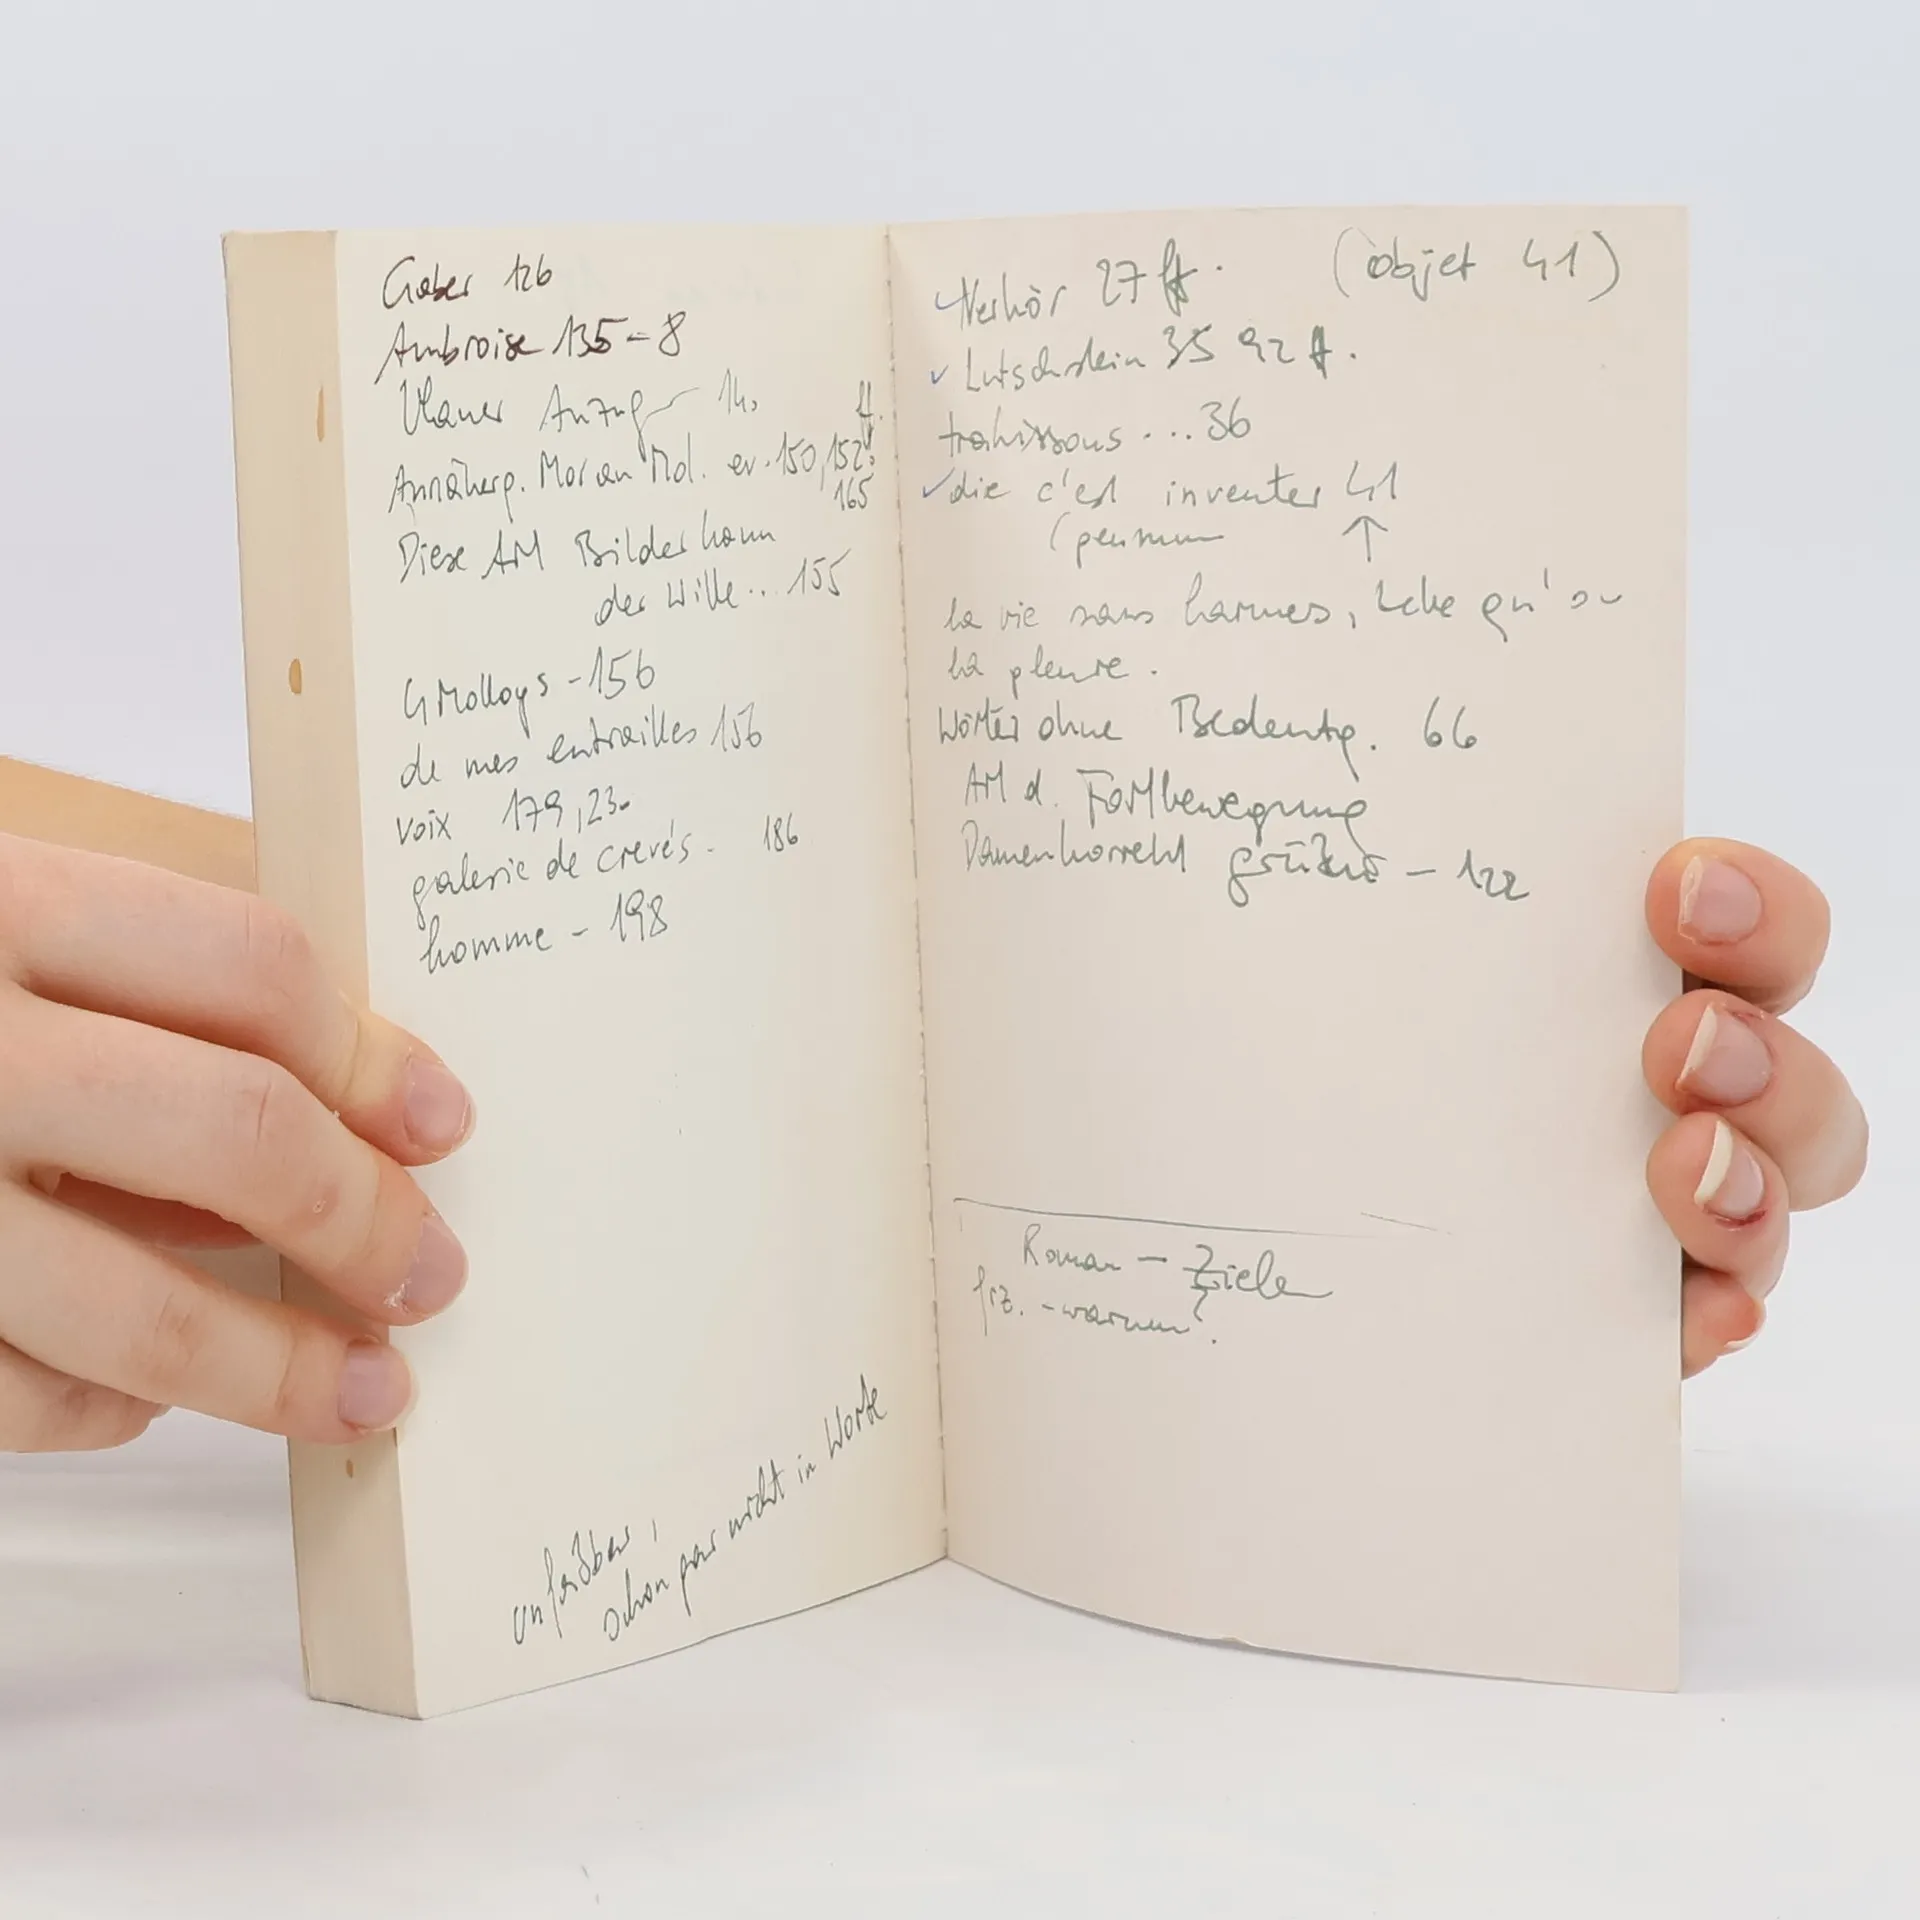 Gaber 126
Ambroise 135-8
Ulaner Anzug 14.
ff.
Annäherg. Moran Mol. ev. 150, 152,
165
Diese Art Bilder kann
der Wille... 155
4 Molloys - 156
de mes entrailles 156
voix 179, 23.
galerie de crevés - 186
homme - 198
schon gar nicht in Worte
Verhör 27 ff.
(objet 41)
✓ Lutschstein 35 92 ff.
trahissons ... 36
✓ die c'est inventer 41
(pensum ↑
la vie sans larmes, telle qu'on
la pleure.
Wörter ohne Bedeutg. 66
Art d. Fortbewegung
Damen korrekt grüßen - 122
Roman - Ziele
frz. - warum?